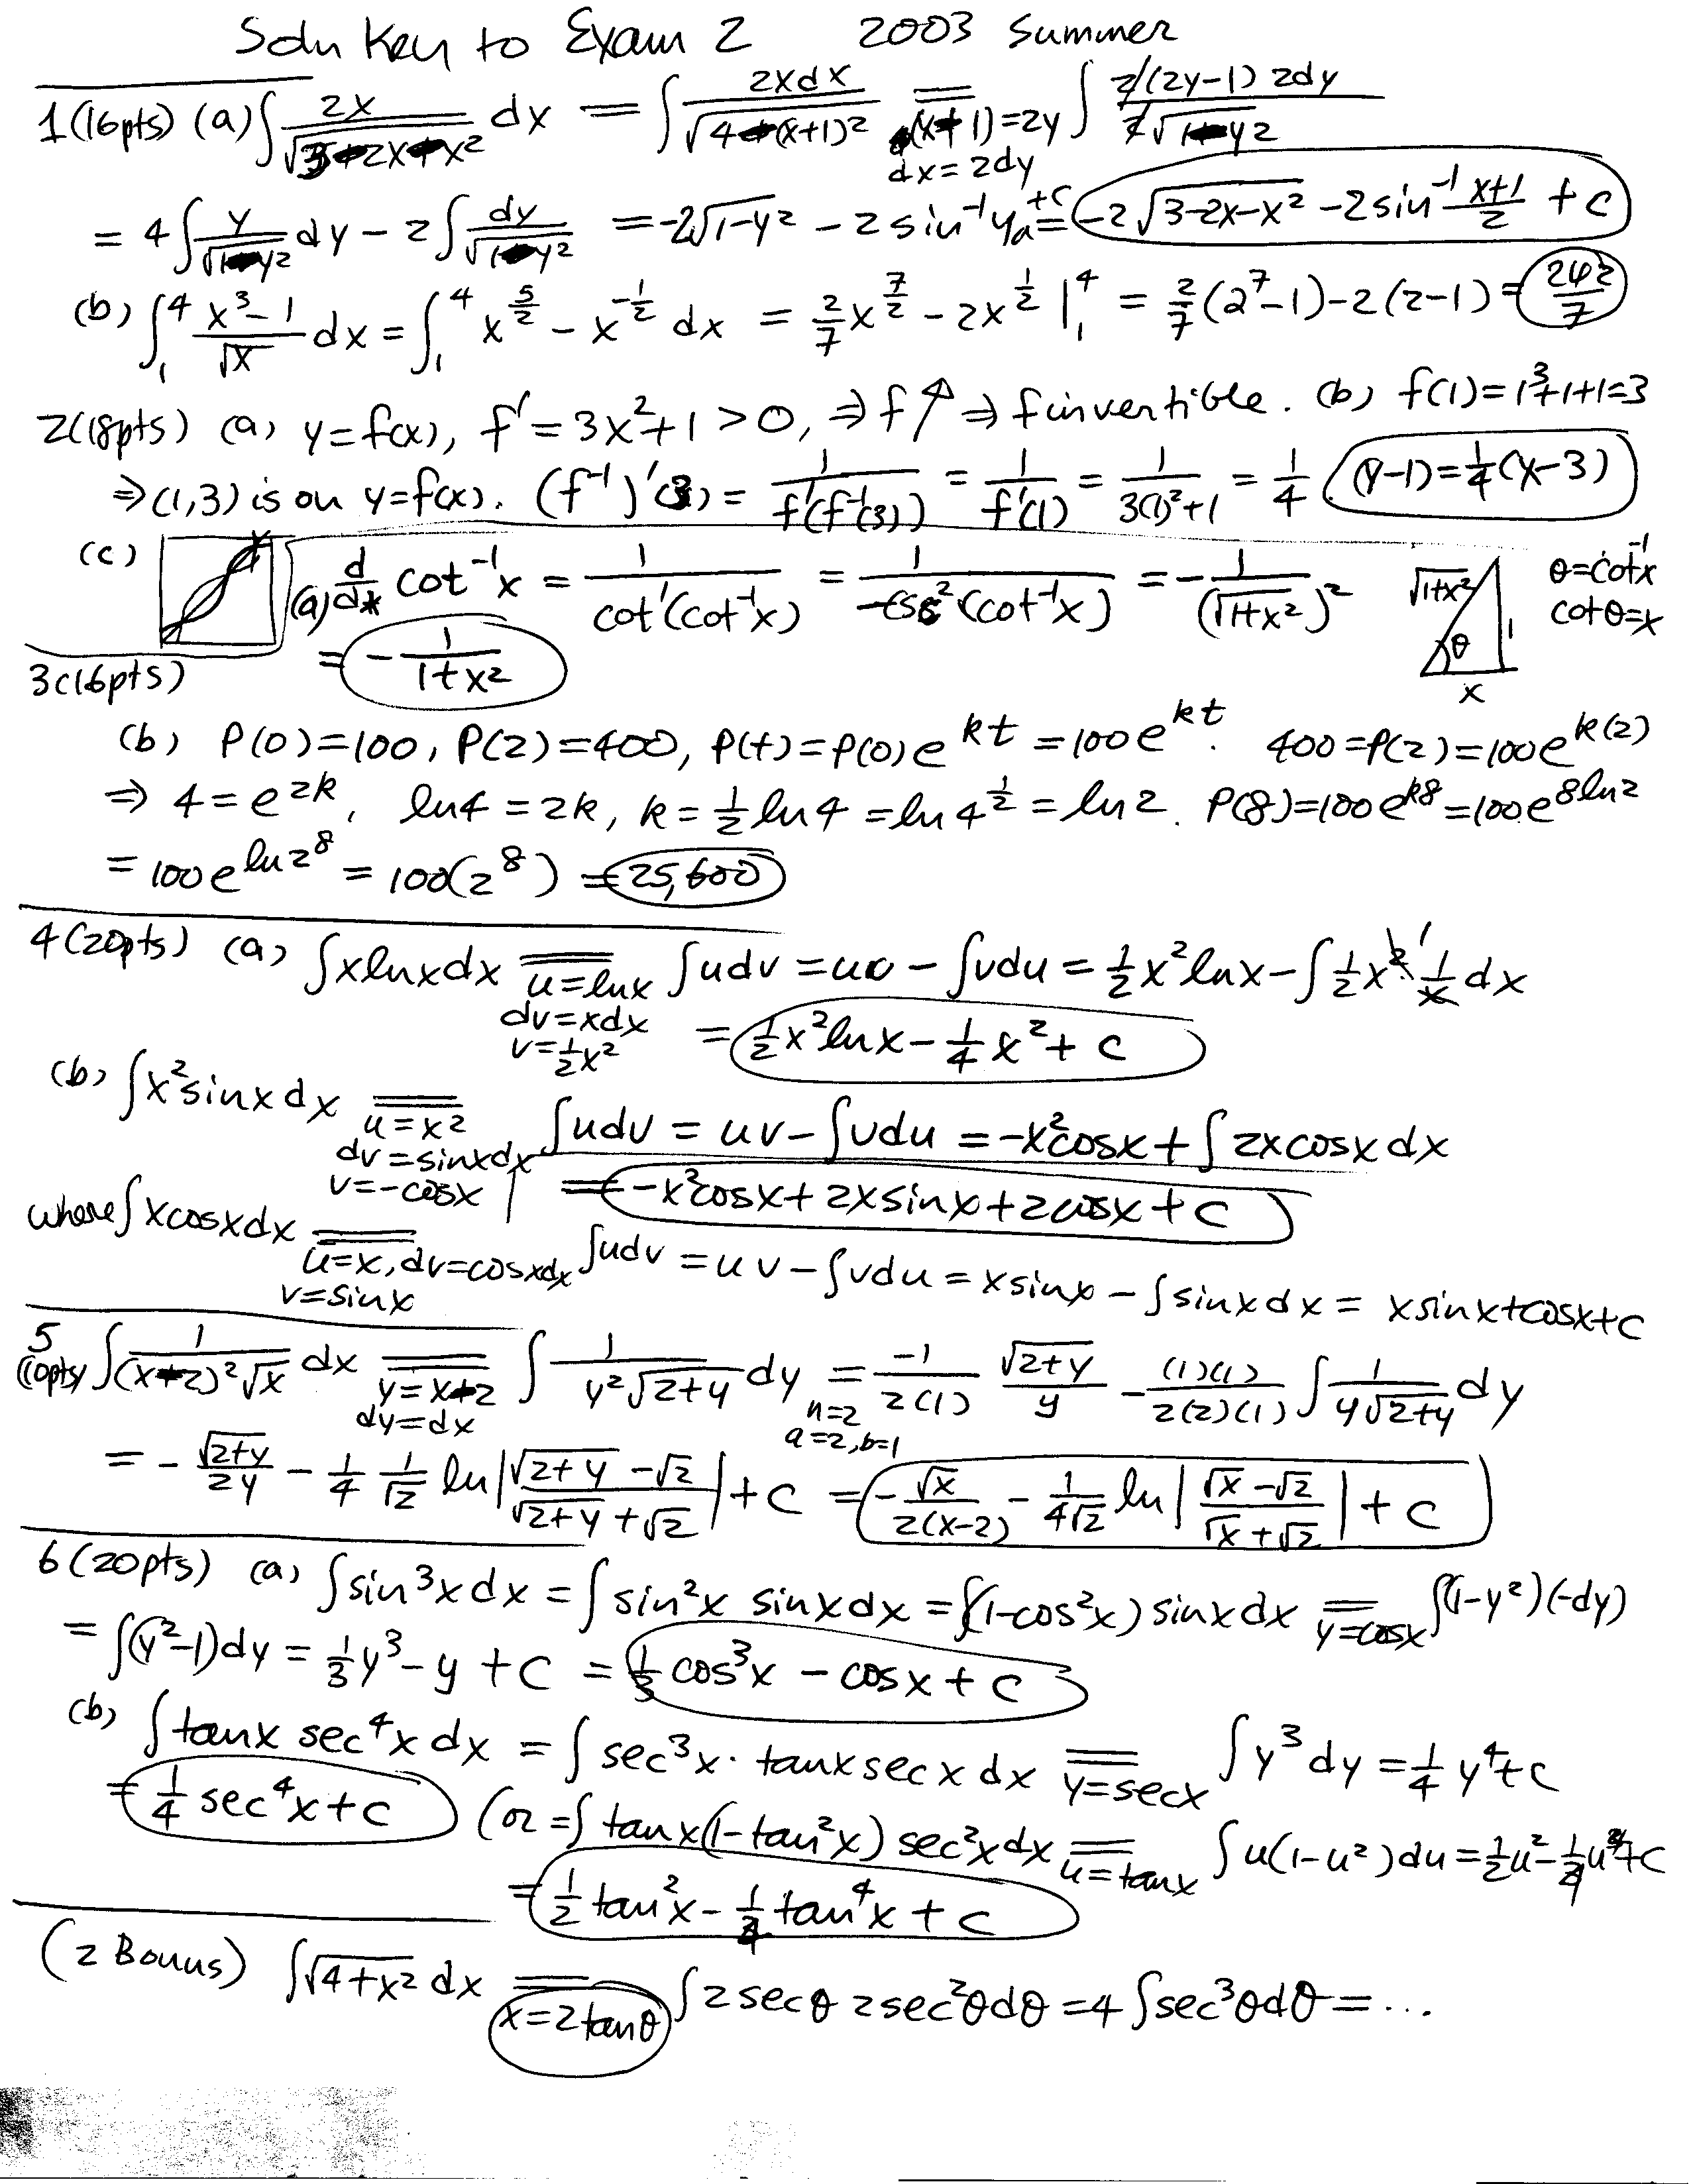 Soln Key to Exam 2 2003 Summer
1(16pts) (a) ∫ 2x/√(3-2x-x²) dx = ∫ 2xdx/√(4-(x+1)²) = [(x+1)=2y, dx=2dy] ∫ 2(2y-1) 2dy / 2√(1-y²)
= 4∫ y/√(1-y²) dy - 2∫ dy/√(1-y²) = -2√(1-y²) - 2 sin⁻¹y +C = -2√(3-2x-x²) - 2sin⁻¹ (x+1)/2 + C
(b) ∫₁⁴ (x³-1)/√x dx = ∫₁⁴ x^(5/2) - x^(-1/2) dx = 2/7 x^(7/2) - 2x^(1/2) |₁⁴ = 2/7 (2⁷-1) - 2(2-1) = 242/7
2(18pts) (a) y=f(x), f' = 3x²+1 > 0, ⇒ f ↗ ⇒ f invertible. (b) f(1)=1³+1+1=3
⇒ (1,3) is on y=f(x). (f⁻¹)'(3) = 1/f'(f⁻¹(3)) = 1/f'(1) = 1/(3(1)²+1) = 1/4 (y-1)=1/4(x-3)
(c)
3(16pts) (a) d/dx cot⁻¹x = 1/cot'(cot⁻¹x) = 1/-csc²(cot⁻¹x) = -1/(√(1+x²))² √(1+x²) θ 1 x θ=cot⁻¹x cotθ=x
= -1/(1+x²)
(b) P(0)=100, P(2)=400, P(t)=P(0)e^(kt) = 100e^(kt). 400=P(2)=100e^(k(2))
⇒ 4=e^(2k), ln4=2k, k=1/2 ln4 = ln4^(1/2) = ln2. P(8)=100e^(k8)=100e^(8ln2)
= 100e^(ln2⁸) = 100(2⁸) = 25,600
4(20pts) (a) ∫xlnxdx = [u=lnx, dv=xdx, v=1/2x²] ∫udv = uv - ∫vdu = 1/2x²lnx - ∫1/2 x² 1/x dx
= 1/2x²lnx - 1/4x² + C
(b) ∫x²sinxdx = [u=x², dv=sinxdx, v=-cosx] ∫udv = uv-∫vdu = -x²cosx + ∫2xcosxdx
= -x²cosx + 2xsinx + 2cosx + C
where ∫xcosxdx = [u=x, dv=cosxdx, v=sinx] ∫udv = uv-∫vdu = xsinx - ∫sinxdx = xsinx+cosx+C
5 (10pts) ∫ 1/((x-2)²√x) dx = [y=x-2, dy=dx] ∫ 1/(y²√(2+y)) dy = [n=2, a=2, b=1] -1/2(1) √(2+y)/y - (1)(1)/2(2)(1) ∫ 1/(y√(2+y)) dy
= -√(2+y)/2y - 1/4 1/√2 ln|(√(2+y)-√2)/(√(2+y)+√2)| + C = -√x/2(x-2) - 1/4√2 ln|(√x-√2)/(√x+√2)| + C
6(20pts) (a) ∫sin³xdx = ∫sin²x sinxdx = ∫(1-cos²x)sinxdx = [y=cosx] ∫(1-y²)(-dy)
= ∫(y²-1)dy = 1/3y³-y+C = 1/3cos³x - cosx + C
(b) ∫tanx sec⁴xdx = ∫sec³x·tanxsecxdx = [y=secx] ∫y³dy = 1/4y⁴+C
= 1/4 sec⁴x+C (or = ∫tanx(1-tan²x)sec²xdx = [u=tanx] ∫u(1-u²)du = 1/2u²-1/4u⁴+C
= 1/2tan²x - 1/4tan⁴x + C
(2 Bonus) ∫√(4+x²) dx = [x=2tanθ] ∫2secθ 2sec²θdθ = 4∫sec³θdθ = ...